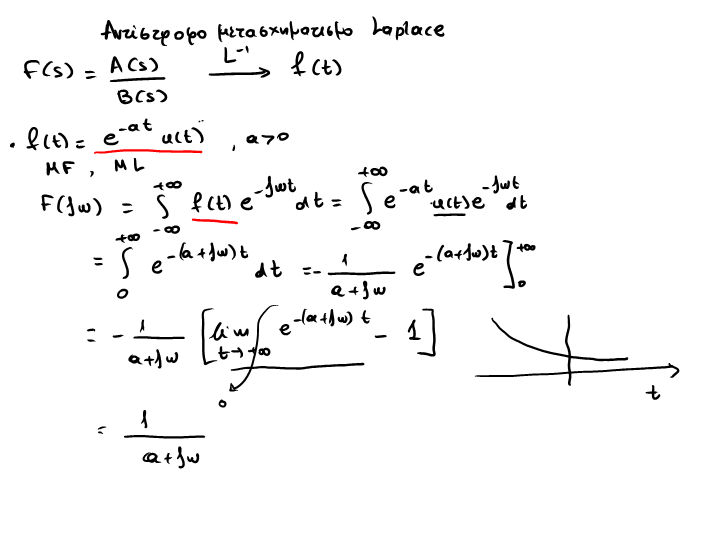 Αντίστροφο μετασχηματισμο Laplace
F(s) = A(s)/B(s) L⁻¹ → f(t)
• f(t) = e^{-at} u(t), a>0
MF, ML
F(jω) = ∫_{-∞}^{+∞} f(t) e^{-jωt} dt = ∫_{-∞}^{+∞} e^{-at} u(t) e^{-jωt} dt
= ∫_{0}^{+∞} e^{-(a+jω)t} dt = - 1/(a+jω) e^{-(a+jω)t} ]_{0}^{+∞}
= - 1/(a+jω) [ lim_{t→+∞} e^{-(a+jω)t} - 1 ]
0
t
= 1/(a+jω)